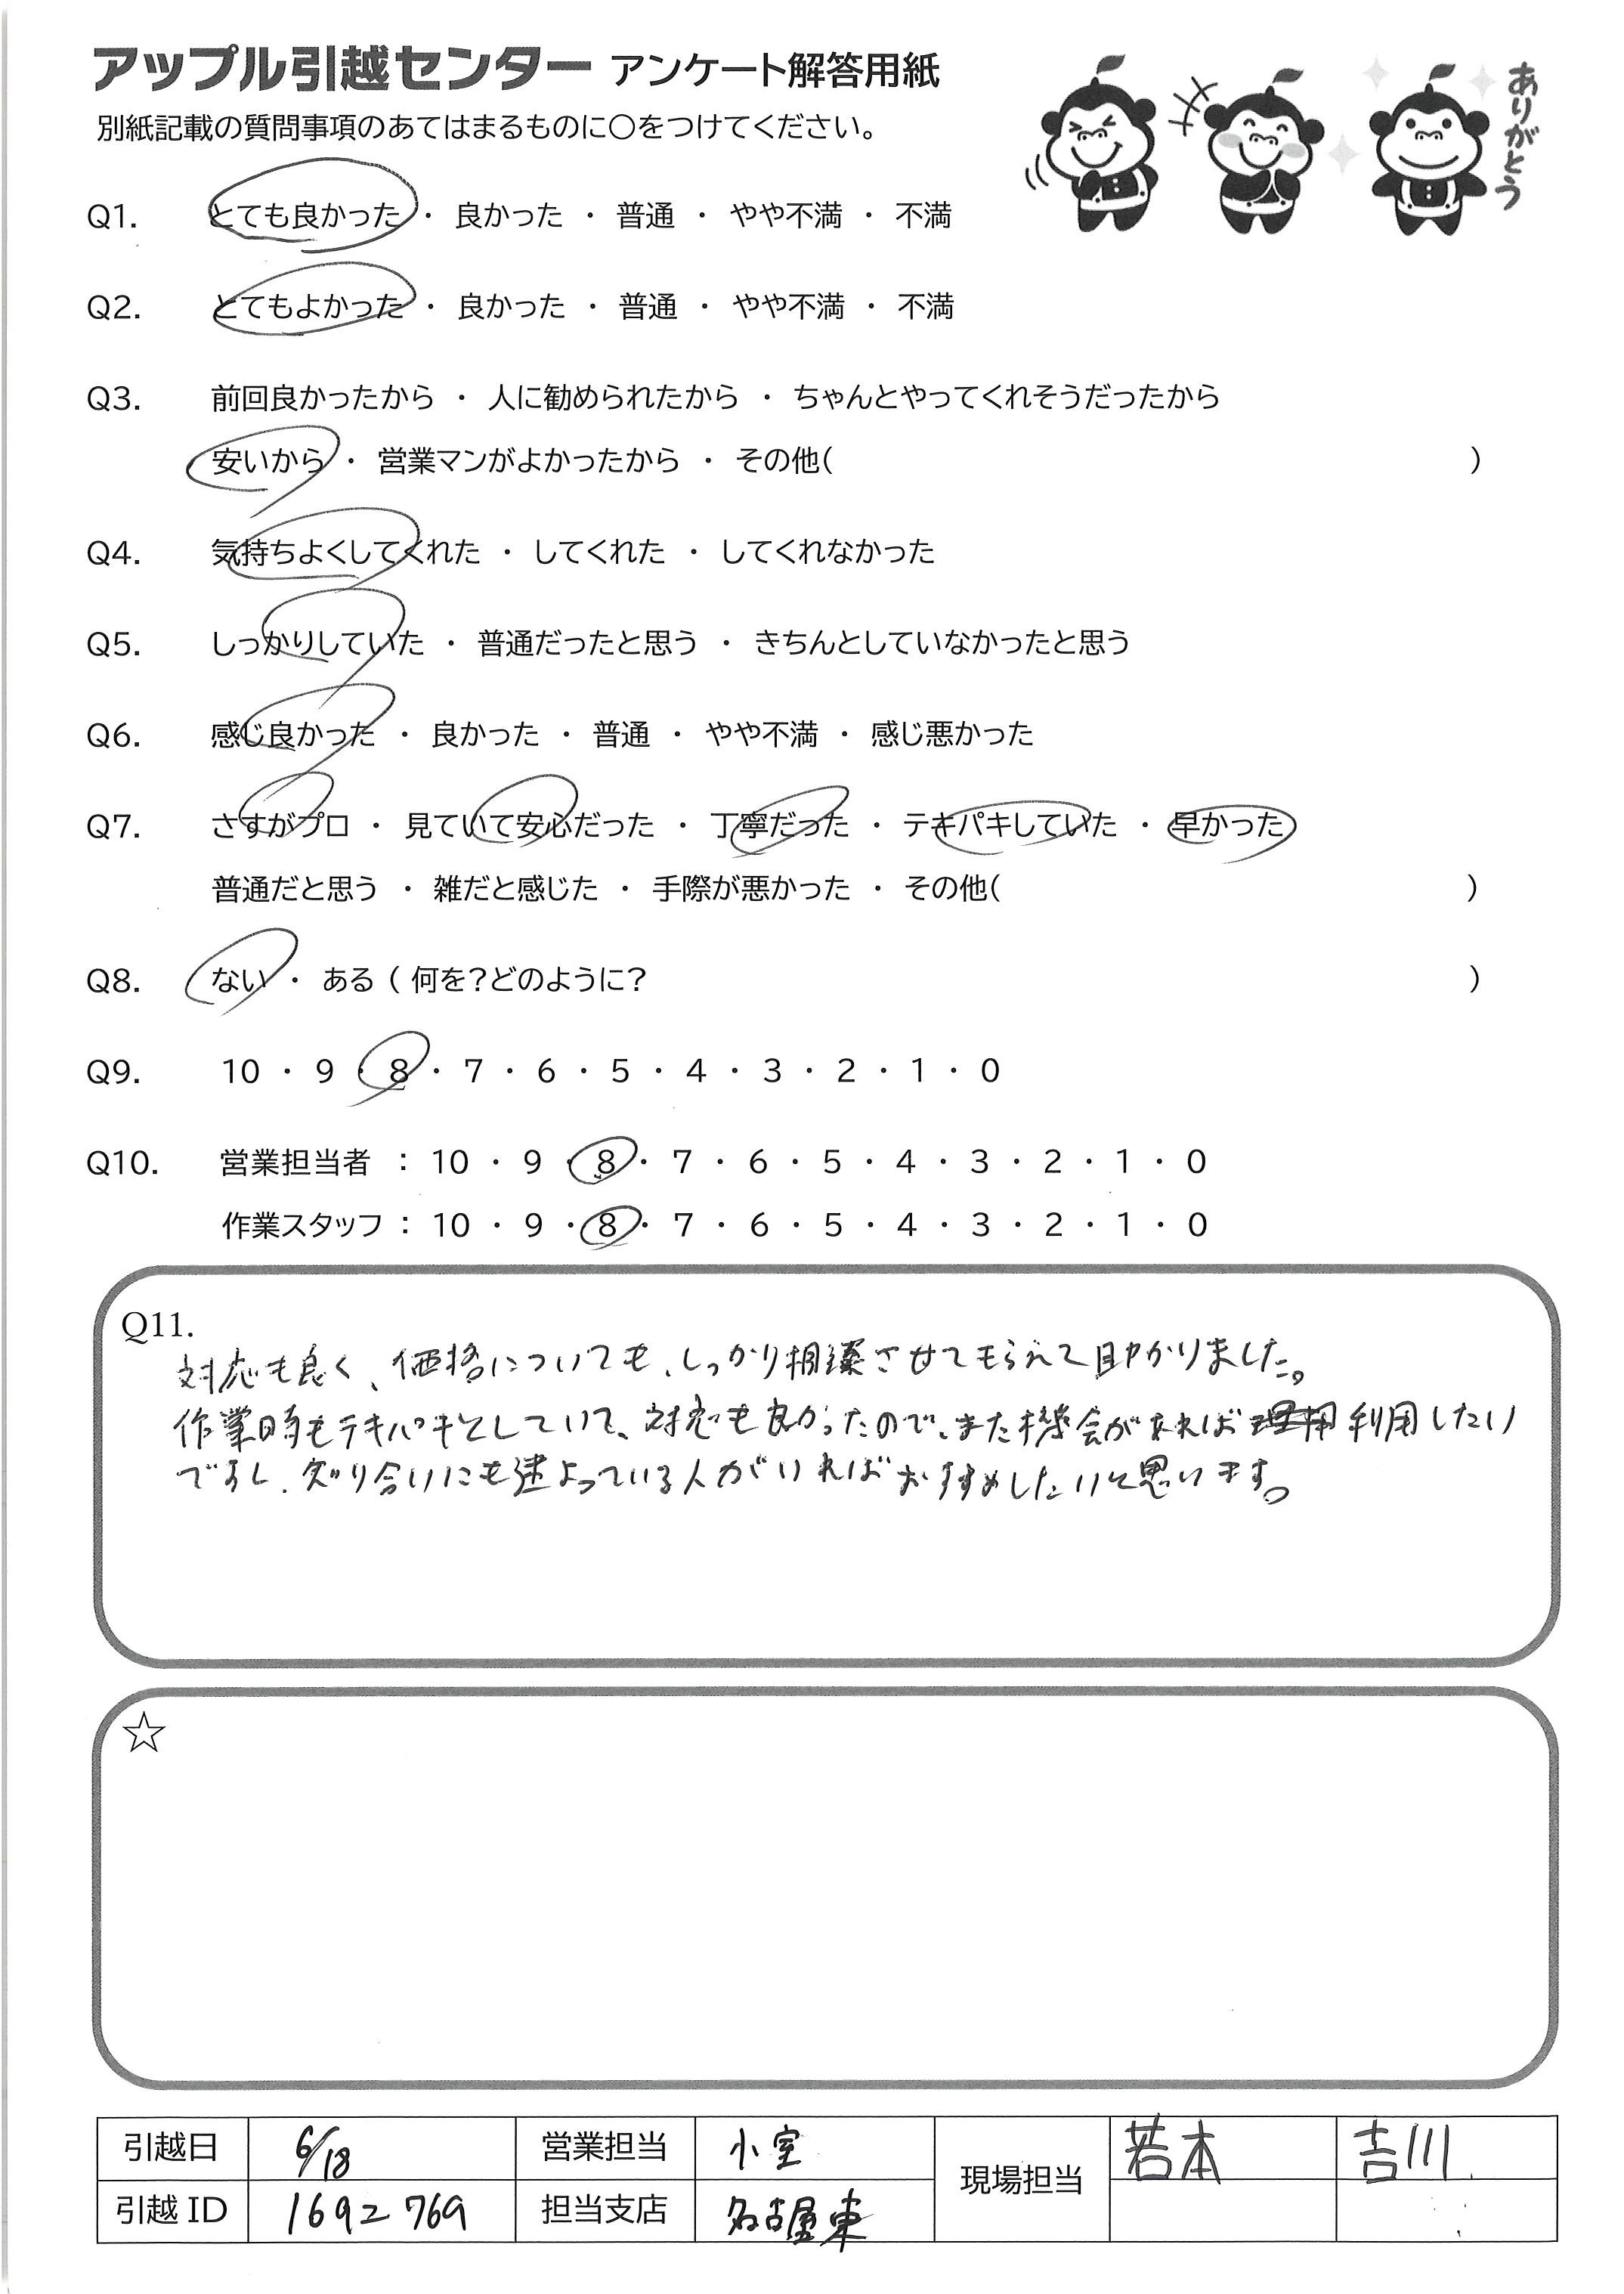 アップル引越センター アンケート解答用紙
ありがとう
別紙記載の質問事項のあてはまるものに○をつけてください。
Q1. とても良かった ・ 良かった ・ 普通 ・ やや不満 ・ 不満
Q2. とてもよかった ・ 良かった ・ 普通 ・ やや不満 ・ 不満
Q3. 前回良かったから ・ 人に勧められたから ・ ちゃんとやってくれそうだったから
安いから ・ 営業マンがよかったから ・ その他( )
Q4. 気持ちよくしてくれた ・ してくれた ・ してくれなかった
Q5. しっかりしていた ・ 普通だったと思う ・ きちんとしていなかったと思う
Q6. 感じ良かった ・ 良かった ・ 普通 ・ やや不満 ・ 感じ悪かった
Q7. さすがプロ ・ 見ていて安心だった ・ 丁寧だった ・ テキパキしていた ・ 早かった
普通だと思う ・ 雑だと感じた ・ 手際が悪かった ・ その他( )
Q8. ない ・ ある ( 何を?どのように? )
Q9. 10 ・ 9 ・ 8 ・ 7 ・ 6 ・ 5 ・ 4 ・ 3 ・ 2 ・ 1 ・ 0
Q10. 営業担当者 : 10 ・ 9 ・ 8 ・ 7 ・ 6 ・ 5 ・ 4 ・ 3 ・ 2 ・ 1 ・ 0
作業スタッフ : 10 ・ 9 ・ 8 ・ 7 ・ 6 ・ 5 ・ 4 ・ 3 ・ 2 ・ 1 ・ 0
Q11.
対応も良く、価格についても、しっかり相談させてもらえて助かりました。
作業時もテキパキとしていて、対応も良かったので、また機会があれば利用したい
ですし、知り合いにも迷よっている人がいればおすすめしたいと思います。
☆
引越日 6/18 営業担当 小室 現場担当 若本 吉川
引越 ID 1692769 担当支店 名古屋東